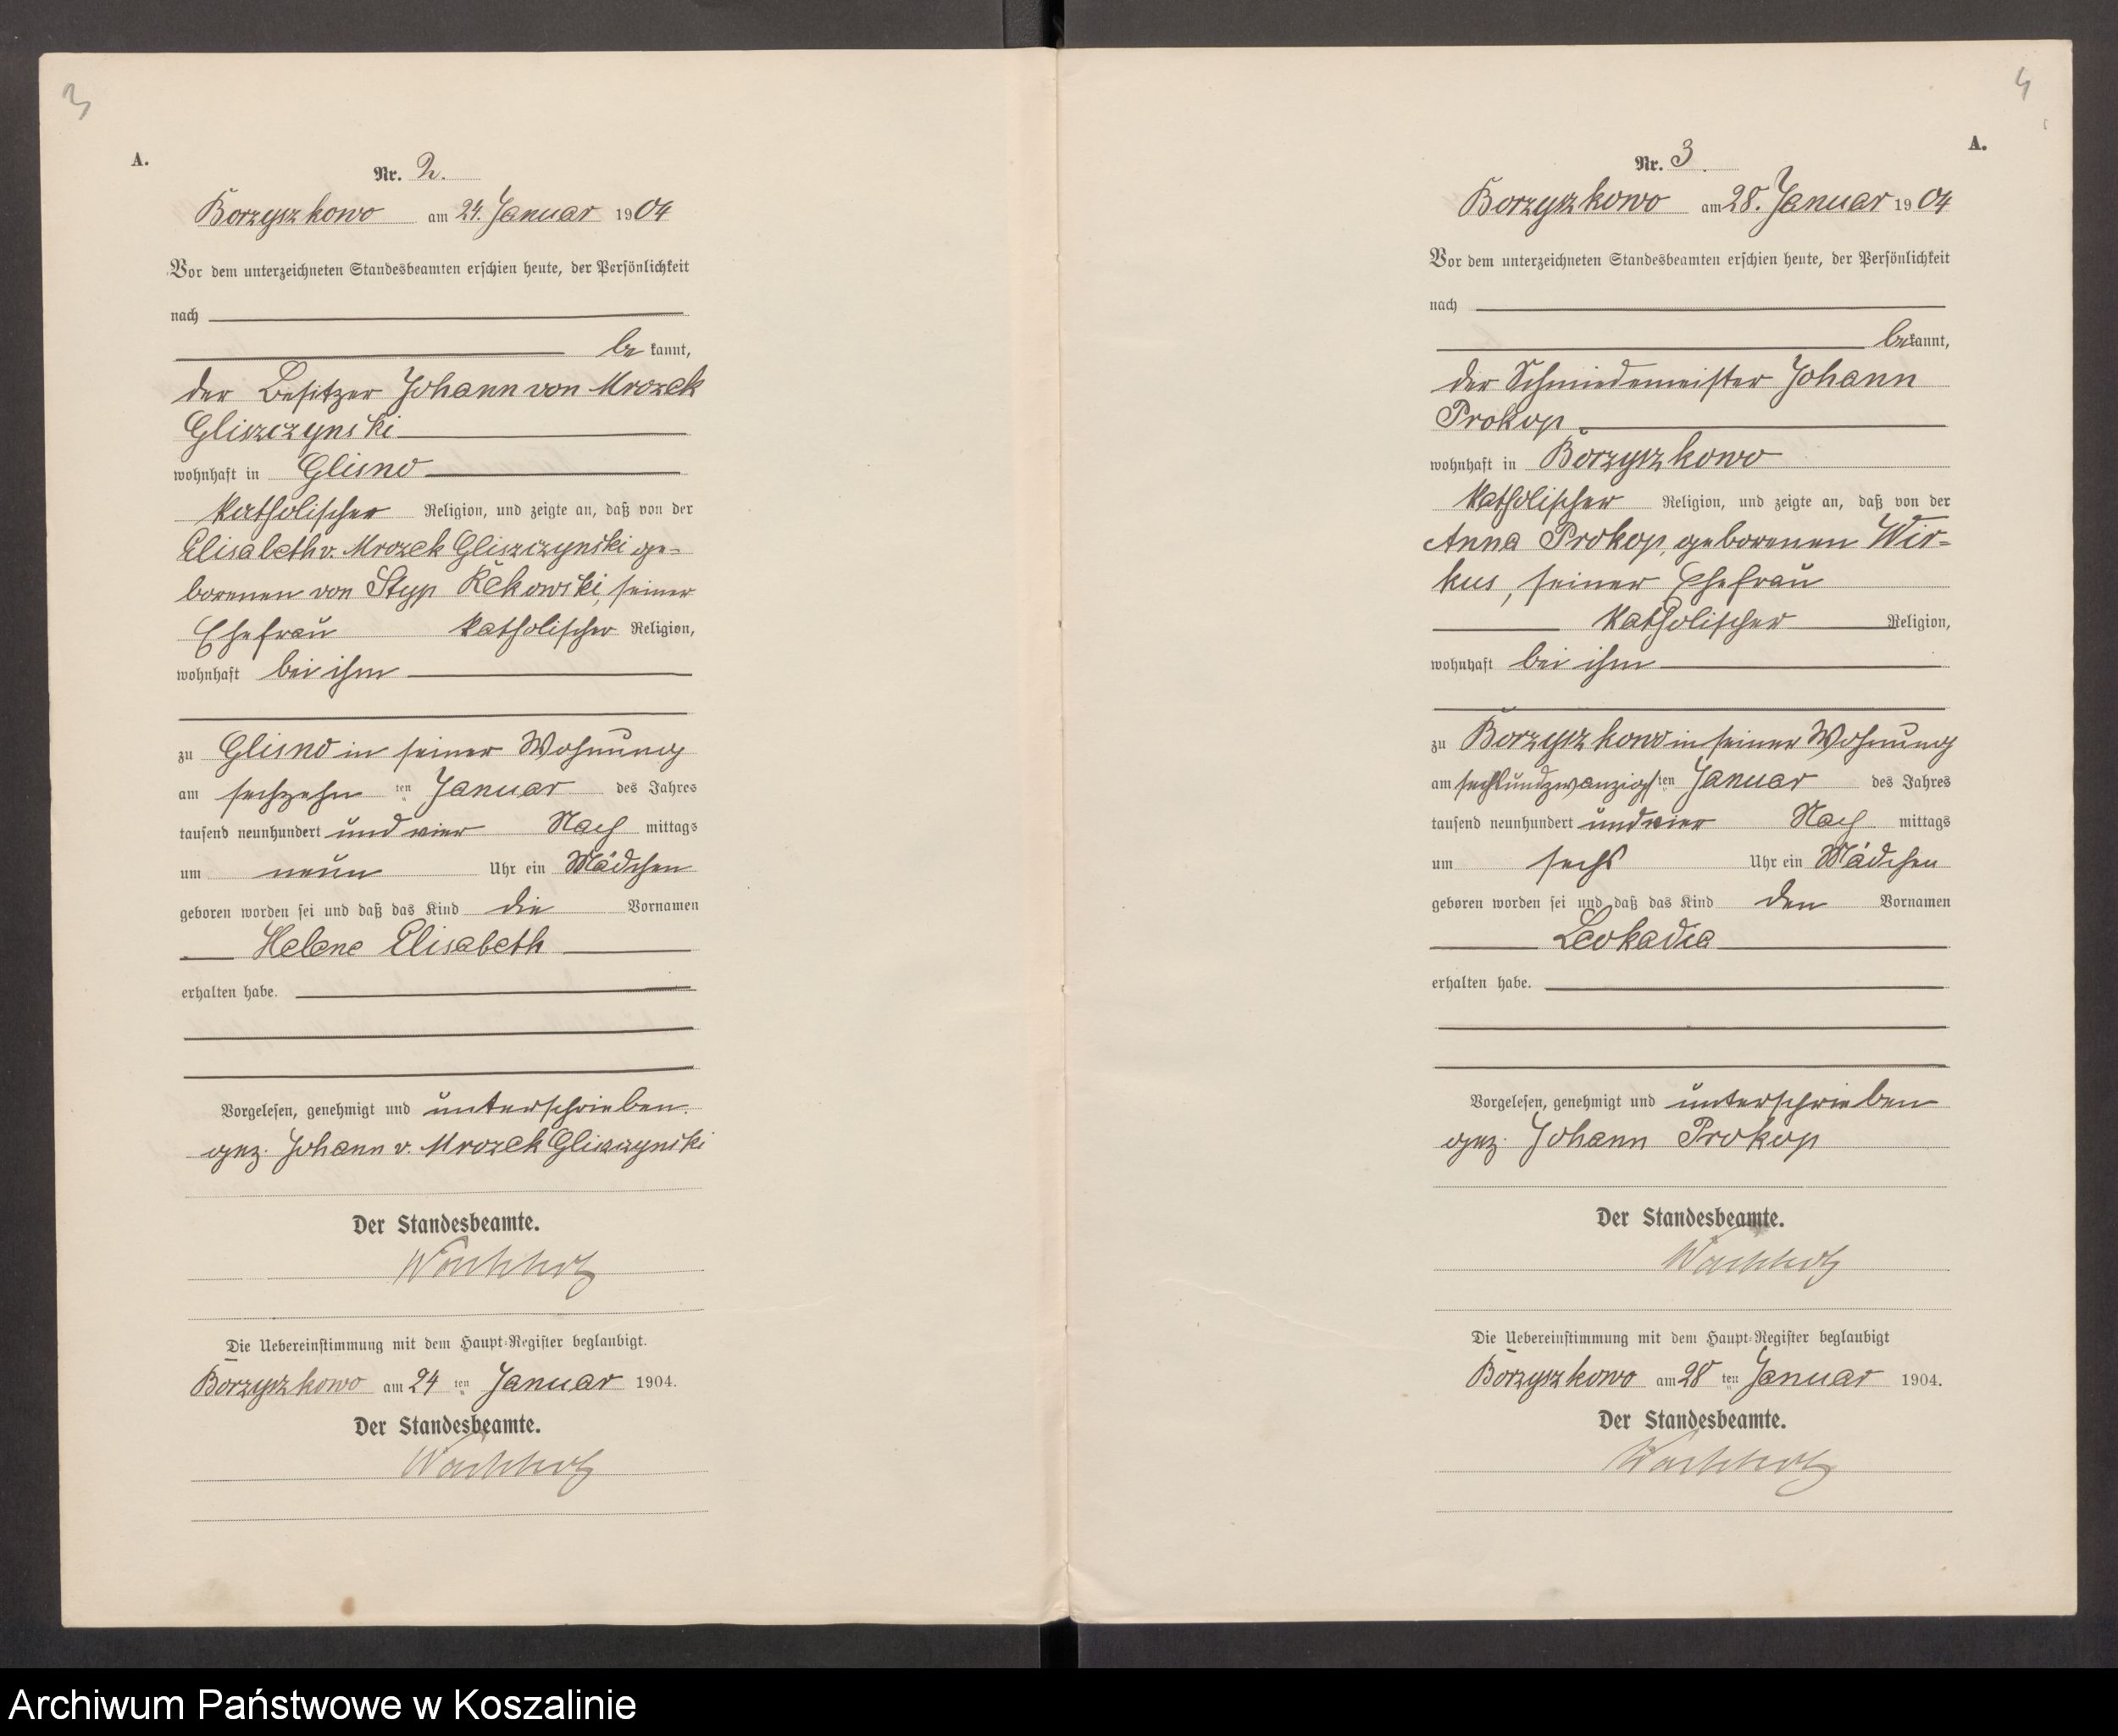 3
A.
Nr. 2.
Borzyszkowo am 24. Januar 1904
Vor dem unterzeichneten Standesbeamten erschien heute, der Persönlichkeit
nach
be kannt,
der Besitzer Johann von Mrozek
Gliszczynski
wohnhaft in Glisno
katholischer Religion, und zeigte an, daß von der
Elisabeth v. Mrozek Gliszczynski ge-
borenen von Styp Rekowski, seiner
Ehefrau katholischer Religion,
wohnhaft bei ihm
zu Glisno in seiner Wohnung
am sechzehn ten Januar des Jahres
tausend neunhundert und vier Nach mittags
um neun Uhr ein Mädchen
geboren worden sei und daß das Kind die Vornamen
Helene Elisabeth
erhalten habe.
Vorgelesen, genehmigt und unterschrieben.
gez. Johann v. Mrozek Gliszczynski
Der Standesbeamte.
Wachholz
Die Uebereinstimmung mit dem Haupt-Register beglaubigt.
Borzyszkowo am 24 ten Januar 1904.
Der Standesbeamte.
Wachholz
4
A.
Nr. 3.
Borzyszkowo am 28. Januar 1904
Vor dem unterzeichneten Standesbeamten erschien heute, der Persönlichkeit
nach
bekannt,
der Schmiedemeister Johann
Prokop
wohnhaft in Borzyszkowo
katholischer Religion, und zeigte an, daß von der
Anna Prokop, geborenen Wir-
kus, seiner Ehefrau
katholischer Religion,
wohnhaft bei ihm
zu Borzyszkowo in seiner Wohnung
am sechsundzwanzigsten Januar des Jahres
tausend neunhundert und vier Nach mittags
um sechs Uhr ein Mädchen
geboren worden sei und daß das Kind den Vornamen
Leokadia
erhalten habe.
Vorgelesen, genehmigt und unterschrieben
gez. Johann Prokop
Der Standesbeamte.
Wachholz
Die Uebereinstimmung mit dem Haupt-Register beglaubigt
Borzyszkowo am 28 ten Januar 1904.
Der Standesbeamte.
Wachholz
Archiwum Państwowe w Koszalinie